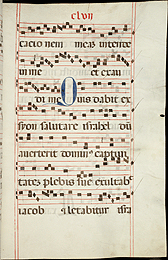 clvii
cacionem meas intende
in me et exau
di me Quis dabit ex
syon salutare israhel dū
auerterit dominus captiui
tates plebis sue exultab
iacob letabitur isra